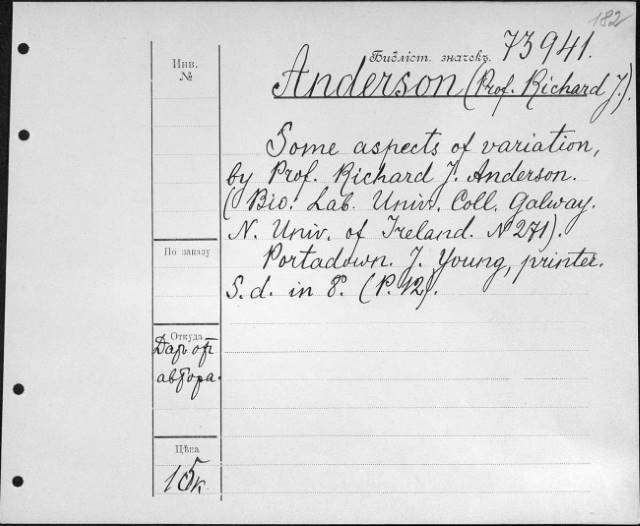 182
Библіот. значекъ 73941.
Инв.
№
Anderson (Prof. Richard J.).
Some aspects of variation,
by Prof. Richard J. Anderson.
(Bio. Lab. Univ. Coll. Galway.
N. Univ. of Ireland. № 271).
По заказу
Portadown. J. Young, printer.
S. d. in 8. (P. 12).
Откуда
Даръ отъ
автора.
Цѣна
15к